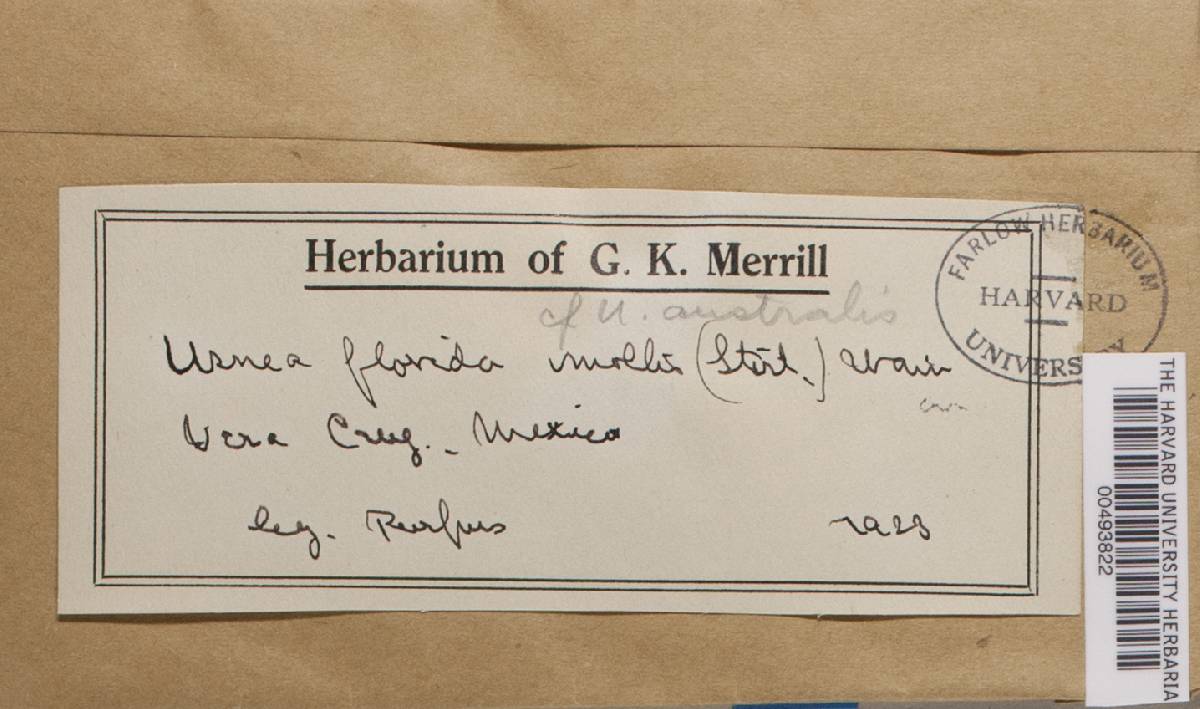 Herbarium of G. K. Merrill
cf U. australis
Usnea florida mollis (Stirt.) Wain
Vera Cruz. Mexico
leg. Purpus
FARLOW HERBARIUM
HARVARD
UNIVERS
THE HARVARD UNIVERSITY HERBARIA
00493822